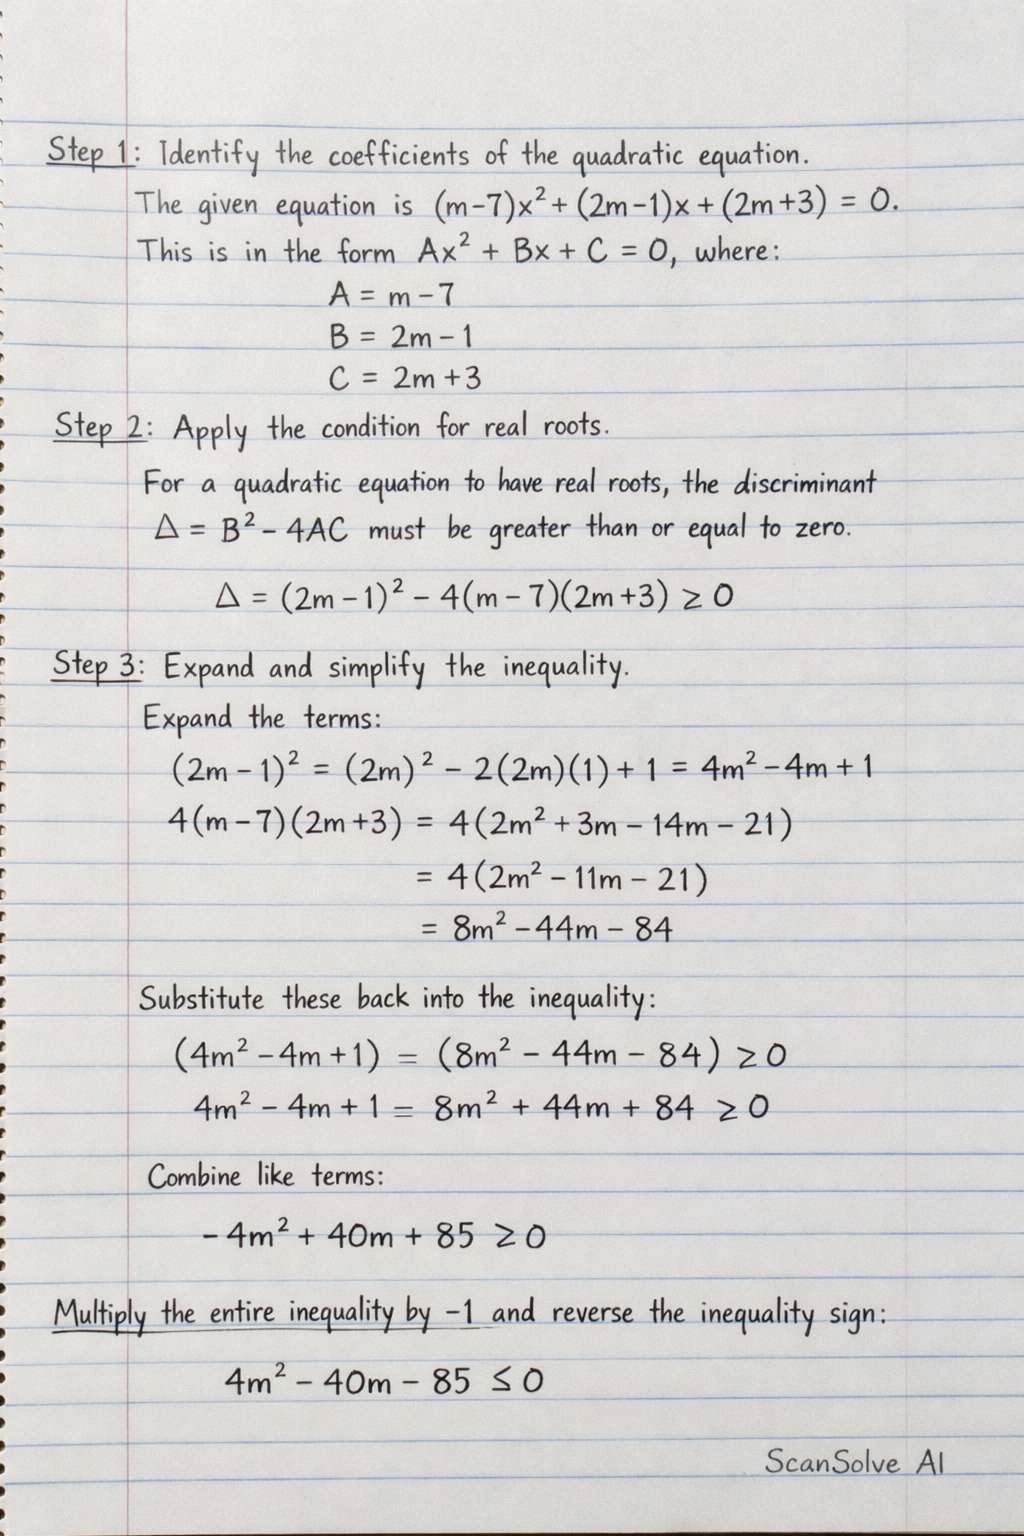 Step 1: Identify the coefficients of the quadratic equation.
The given equation is (m-7)x² + (2m-1)x + (2m+3) = 0.
This is in the form Ax² + Bx + C = 0, where:
A = m - 7
B = 2m - 1
C = 2m + 3
Step 2: Apply the condition for real roots.
For a quadratic equation to have real roots, the discriminant
Δ = B² - 4AC must be greater than or equal to zero.
Δ = (2m - 1)² - 4(m - 7)(2m + 3) ≥ 0
Step 3: Expand and simplify the inequality.
Expand the terms:
(2m - 1)² = (2m)² - 2(2m)(1) + 1 = 4m² - 4m + 1
4(m - 7)(2m + 3) = 4(2m² + 3m - 14m - 21)
= 4(2m² - 11m - 21)
= 8m² - 44m - 84
Substitute these back into the inequality:
(4m² - 4m + 1) = (8m² - 44m - 84) ≥ 0
4m² - 4m + 1 = 8m² + 44m + 84 ≥ 0
Combine like terms:
- 4m² + 40m + 85 ≥ 0
Multiply the entire inequality by -1 and reverse the inequality sign:
4m² - 40m - 85 ≤ 0
ScanSolve AI